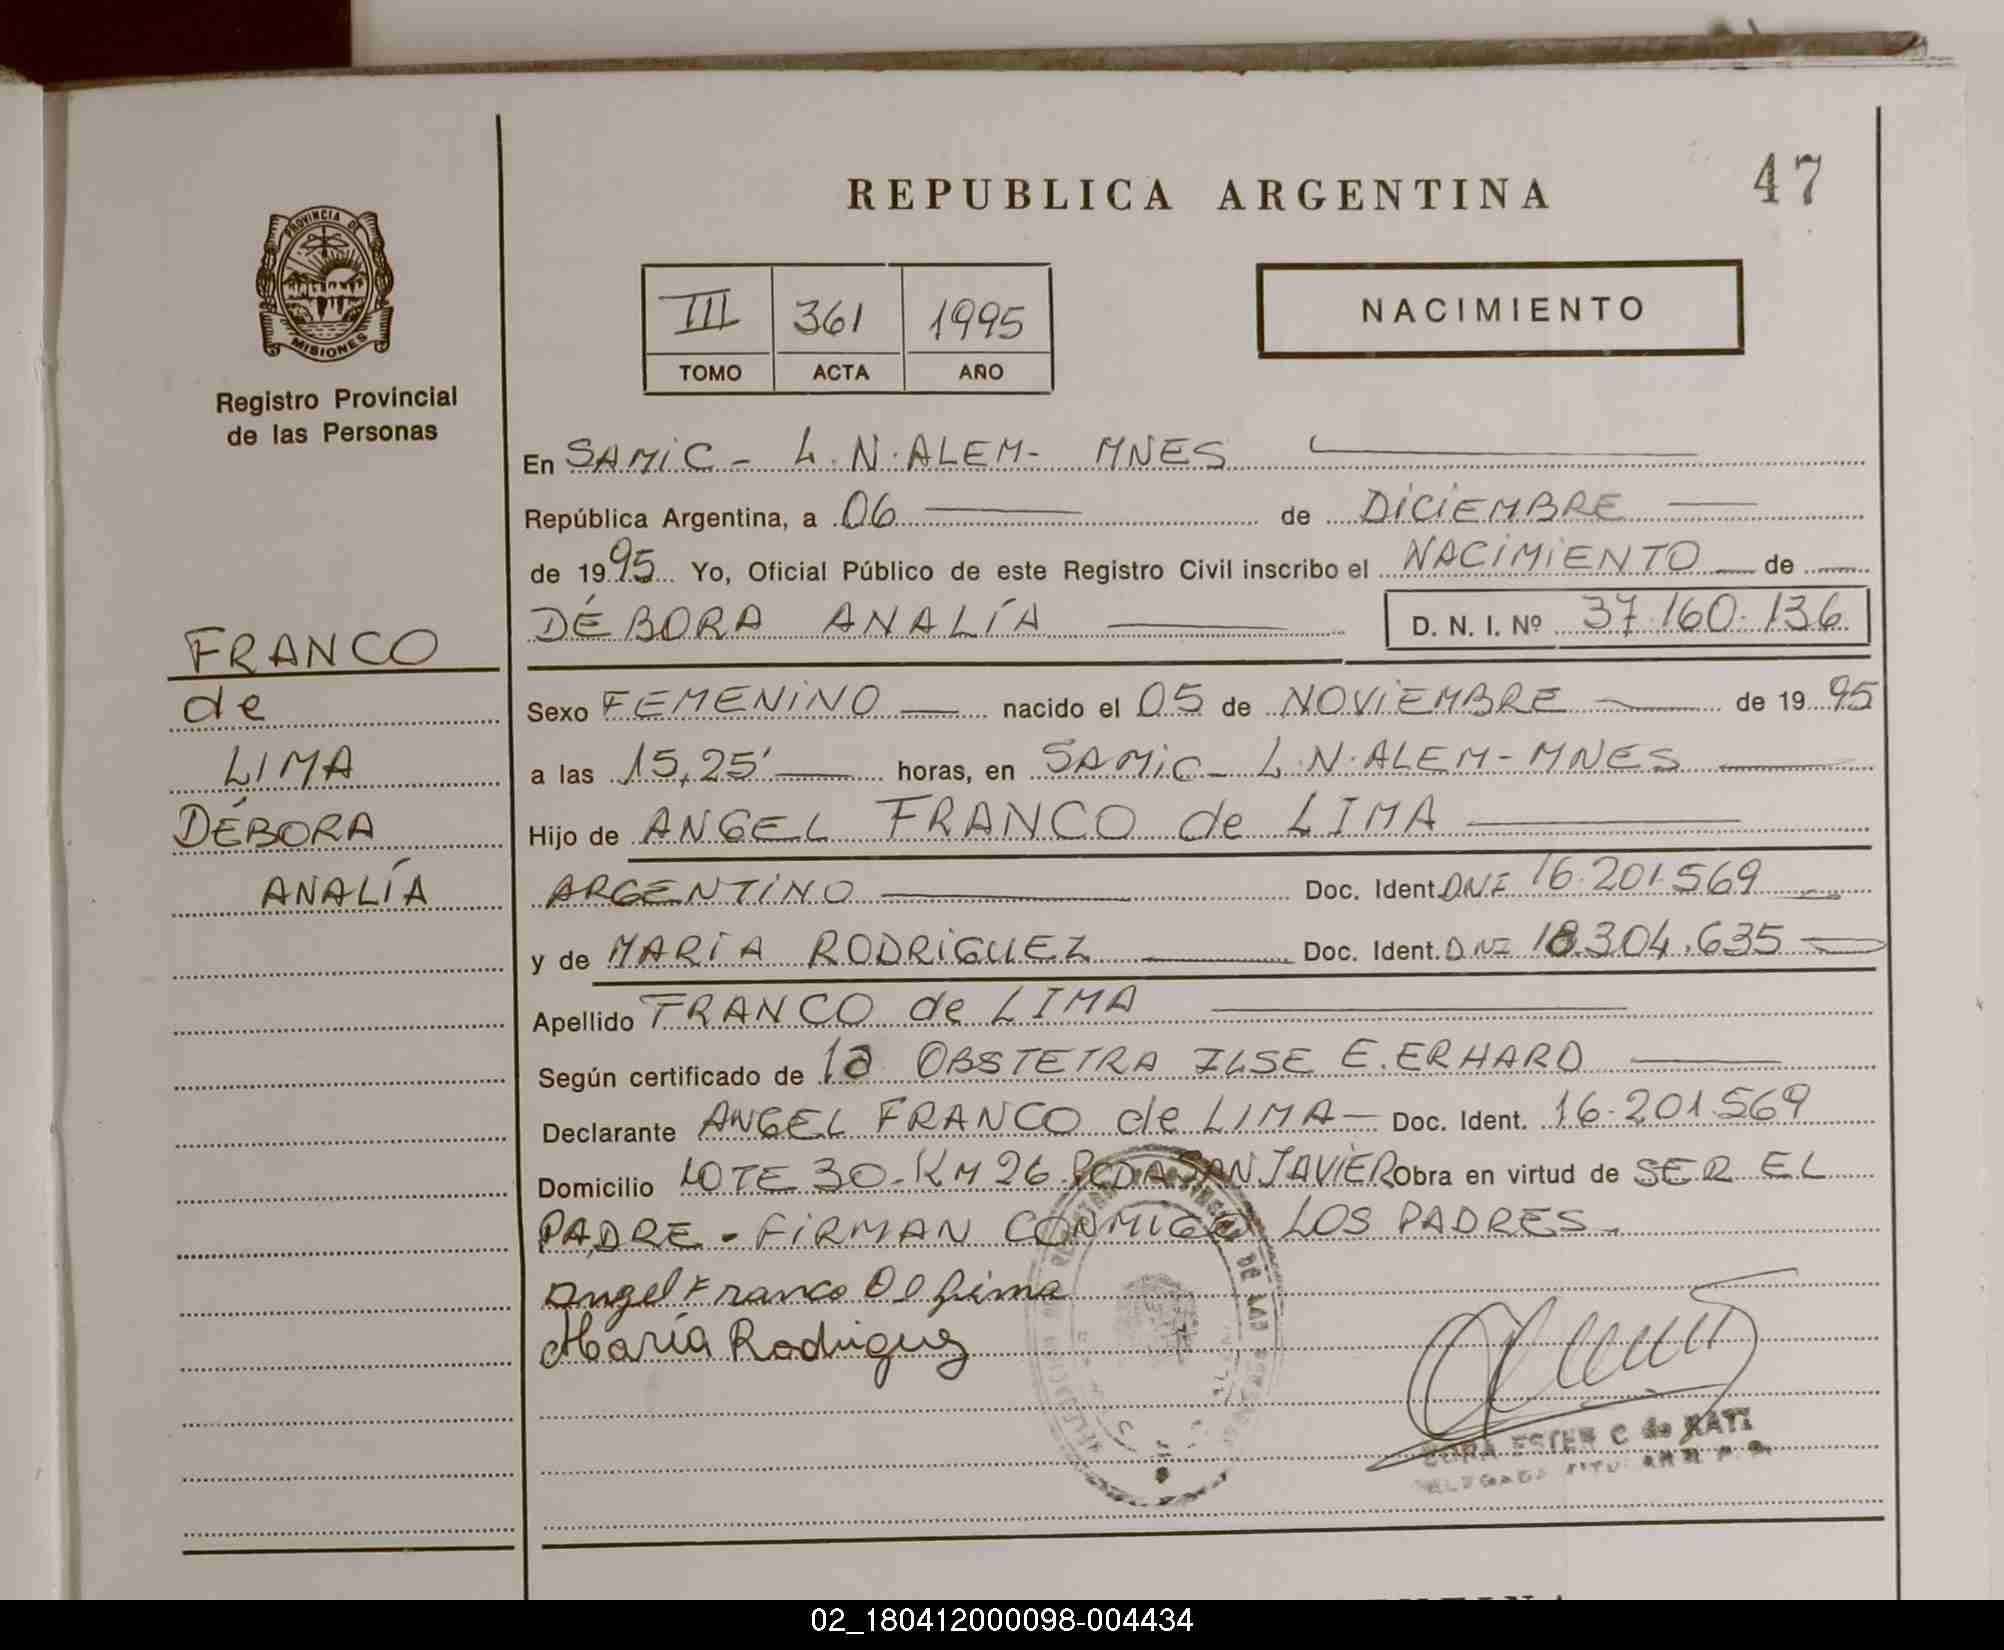 47
REPUBLICA ARGENTINA
PROVINCIA DE
MISIONES
Registro Provincial
de las Personas
III 361 1995
TOMO ACTA AÑO
NACIMIENTO
En SAMIC - L.N.ALEM- MNES
República Argentina, a 06 de DICIEMBRE
de 1995 Yo, Oficial Público de este Registro Civil inscribo el NACIMIENTO de
DÉBORA ANALÍA D. N. I. Nº 37.160.136
FRANCO
de
LIMA
DÉBORA
ANALÍA
Sexo FEMENINO nacido el 05 de NOVIEMBRE de 1995
a las 15,25' horas, en SAMIC - L.N.ALEM-MNES
Hijo de ANGEL FRANCO de LIMA
ARGENTINO Doc. Ident. DNI 16.201.569
y de MARIA RODRIGUEZ Doc. Ident. DNI 18.304.635
Apellido FRANCO de LIMA
Según certificado de la OBSTETRA ILSE E. ERHARD
Declarante ANGEL FRANCO de LIMA - Doc. Ident. 16.201.569
Domicilio LOTE 30-KM 26 PCDA SAN JAVIER Obra en virtud de SER EL
PADRE - FIRMAN CONMIGO LOS PADRES-
Angel Franco De Lima
María Rodriguez
ESTER C de RATI
02_180412000098-004434